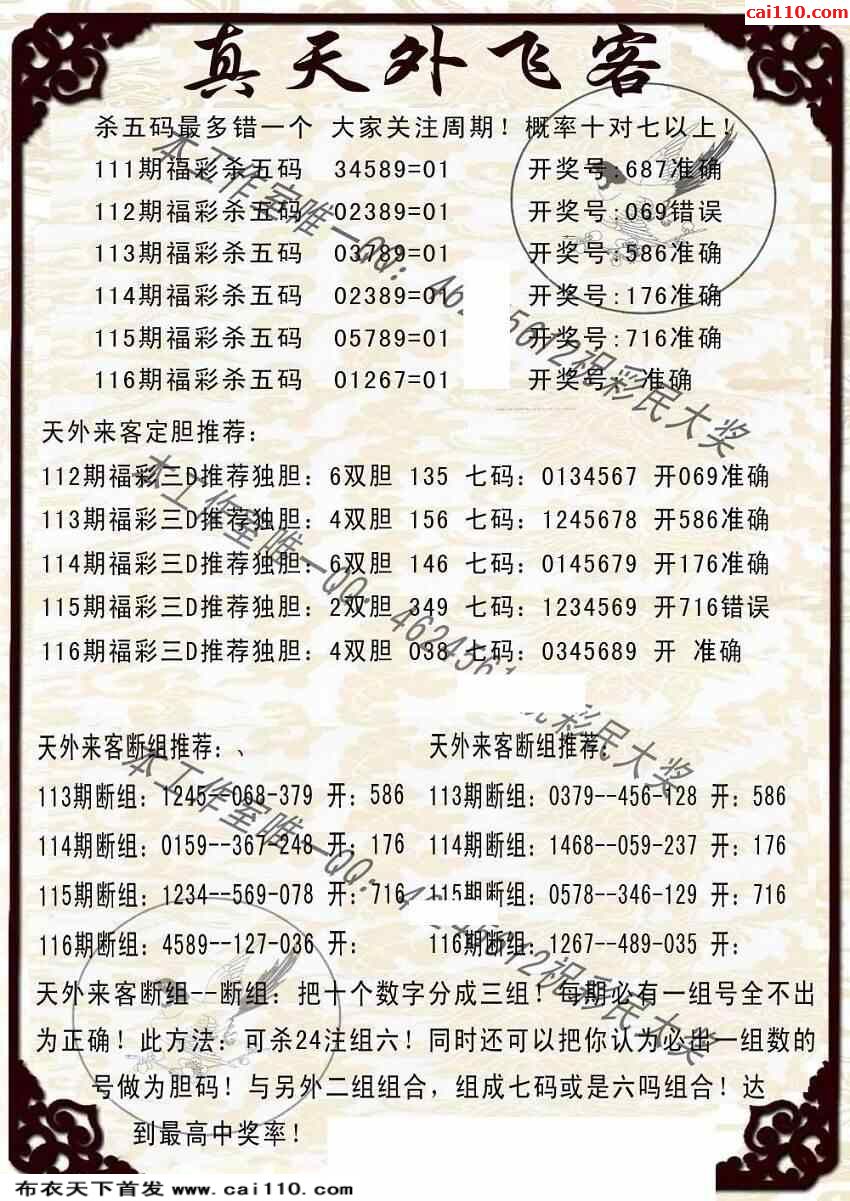 cai110.com
真天外飞客
杀五码最多错一个 大家关注周期！概率十对七以上！
111期福彩杀五码 34589=01 开奖号:687准确
112期福彩杀五码 02389=01 开奖号:069错误
113期福彩杀五码 03789=01 开奖号:586准确
114期福彩杀五码 02389=01 开奖号:176准确
115期福彩杀五码 05789=01 开奖号:716准确
116期福彩杀五码 01267=01 开奖号: 准确
天外来客定胆推荐：
112期福彩三D推荐独胆：6双胆 135 七码：0134567 开069准确
113期福彩三D推荐独胆：4双胆 156 七码：1245678 开586准确
114期福彩三D推荐独胆：6双胆 146 七码：0145679 开176准确
115期福彩三D推荐独胆：2双胆 349 七码：1234569 开716错误
116期福彩三D推荐独胆：4双胆 038 七码：0345689 开 准确
天外来客断组推荐：、 天外来客断组推荐：
113期断组：1245--068-379 开：586 113期断组：0379--456-128 开：586
114期断组：0159--367-248 开：176 114期断组：1468--059-237 开：176
115期断组：1234--569-078 开：716 115期断组：0578--346-129 开：716
116期断组：4589--127-036 开： 116期断组：1267--489-035 开：
天外来客断组--断组：把十个数字分成三组！每期必有一组号全不出
为正确！此方法：可杀24注组六！同时还可以把你认为必出一组数的
号做为胆码！与另外二组组合，组成七码或是六吗组合！达
到最高中奖率！
本工作室唯一QQ：祝彩民大奖
本工作室唯一QQ：彩民大奖
本工作室唯一QQ：祝彩民大奖
布衣天下首发 www.cai110.com